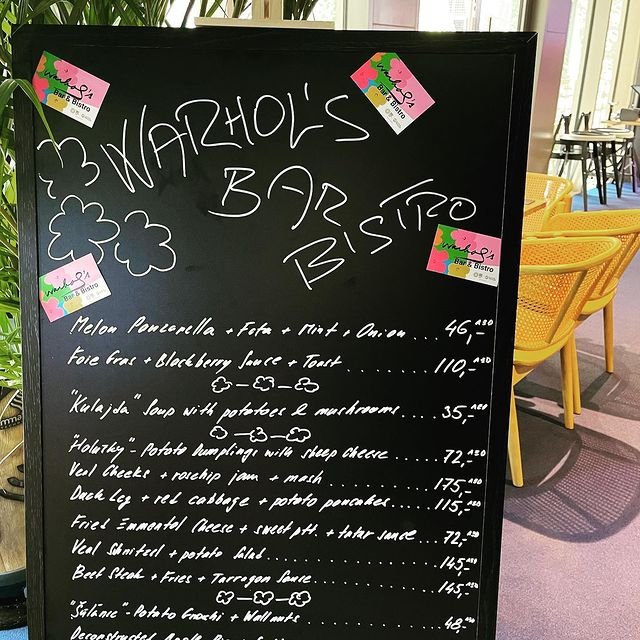 warhol's
Bar & Bistro
warhol's
Bar & Bistro
WARHOL'S
BAR
BISTRO
warhol's
Bar & Bistro
warhol's
Bar & Bistro
Melon Panzanella + Feta + Mint + Onion ... 46,- AED
Foie Gras + Blackberry Sauce + Toast ........ 110,- AED
"Kulajda" Soup with potatoes & mushrooms .... 35,- AED
"Halušky" - Potato Dumplings with sheep cheese ..... 72,- AED
Veal Cheeks + rosehip jam + mash ............ 175,- AED
Duck Leg + red cabbage + potato pancakes ..... 115,- AED
Fried Emmental Cheese + sweet ptt. + tatar sauce ... 72,- AED
Veal Shnitzel + potato salad .............. 145,- AED
Beef Steak + Fries + Tarragon Sauce ........... 145,- AED
"Šúlance" - Potato Gnocchi + Wallnuts ........... 48,- AED
Deconstructed Apple